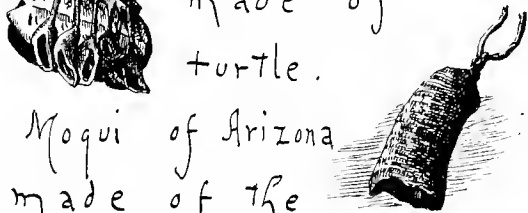 made of
turtle.
Moqui of Arizona
made of the